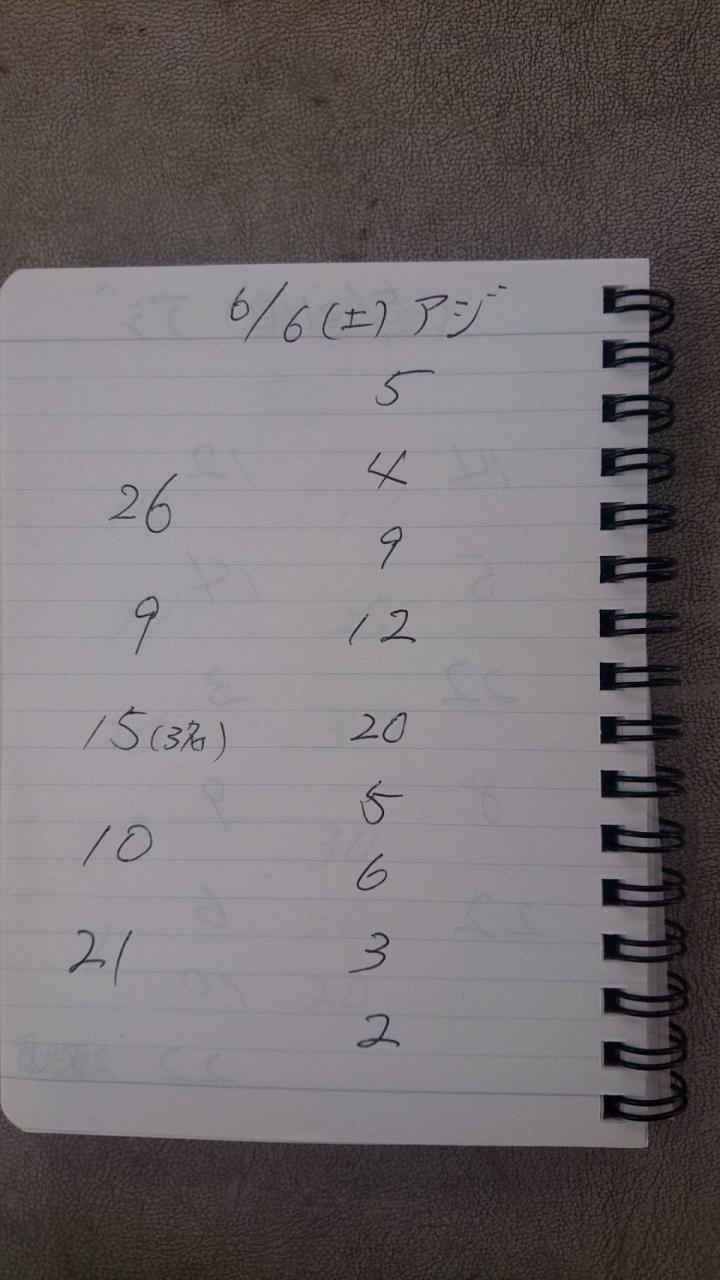 6/6(土)アジ
5
4
26
9
9
12
15(3名)
20
5
10
6
21
3
2